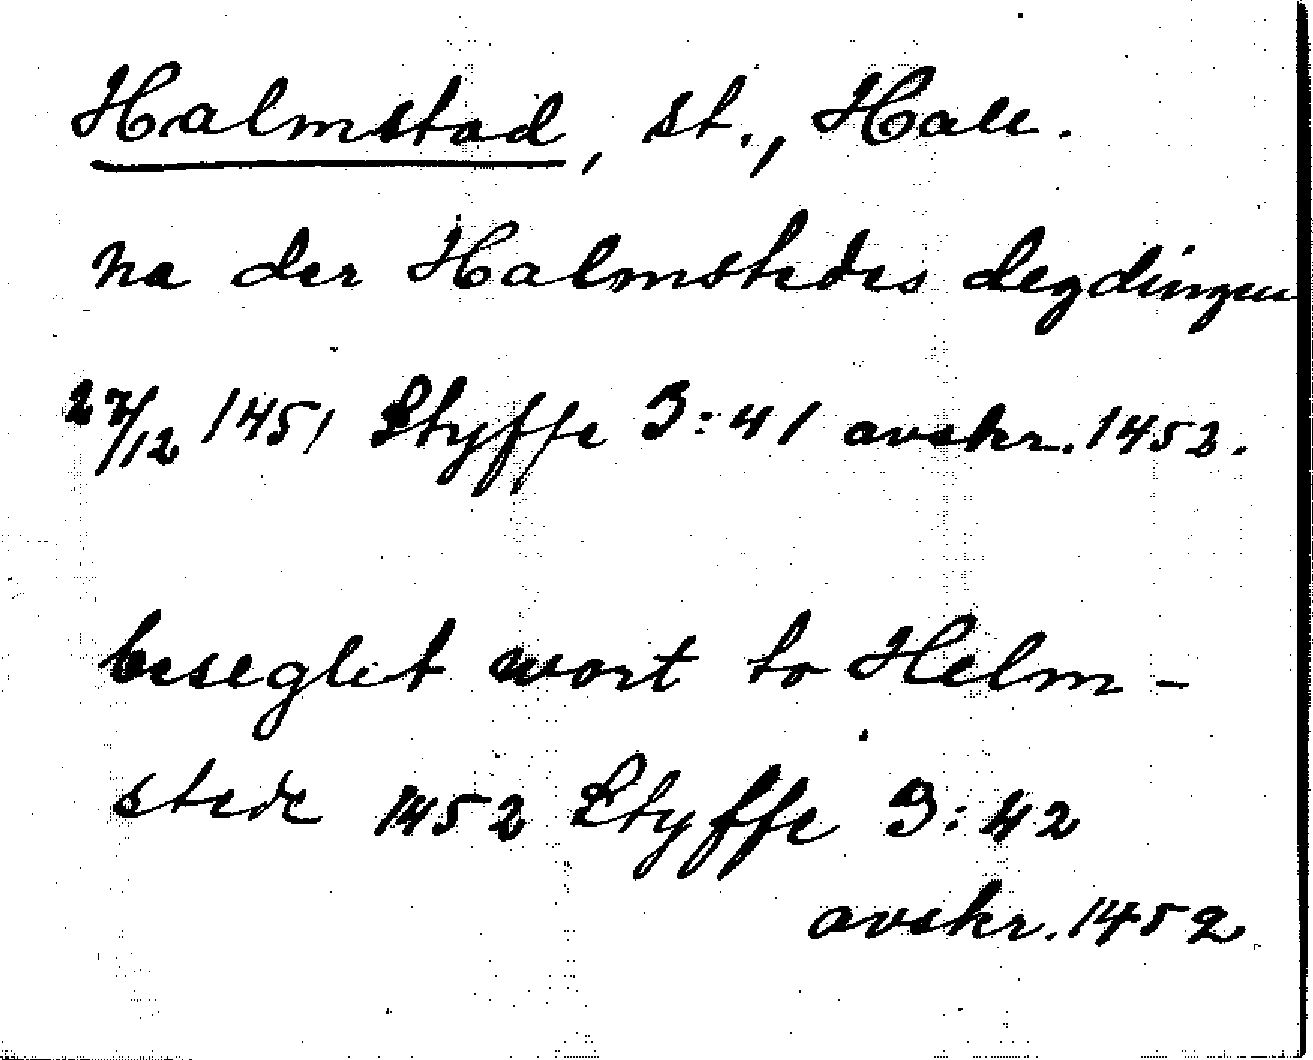 Halmstad, st., Hall.
na der Halmstedes degdingen
27/12 1451 Styffe 3:41 avskr. 1453.
beseglet wort to Helm-
stede 1452 Styffe 3:42
avskr. 1452